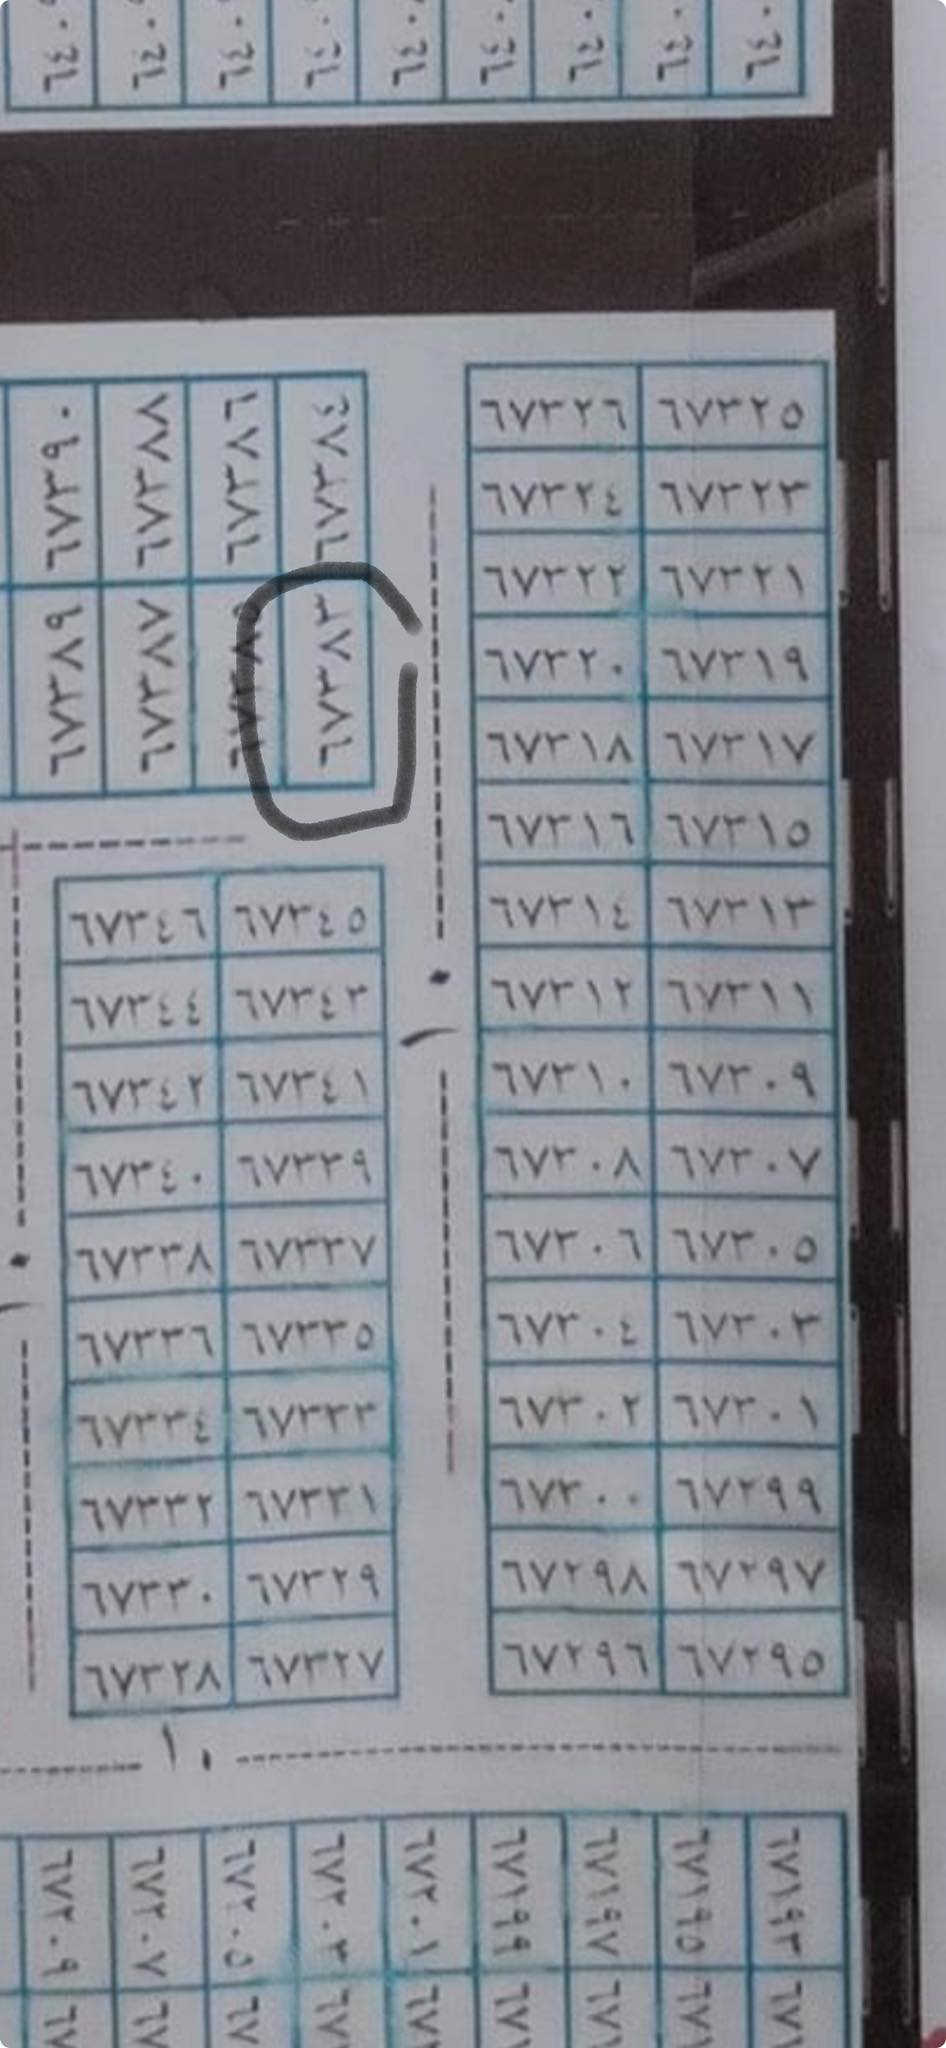 ٦٧٣٩٠ ٦٧٣٨٧ ٦٧٣٨٦ ٦٧٣٨٤
٦٧٣٨٩ ٦٧٣٨٨ ٦٧٣٨٥ ٦٧٣٨٣
٦٧٣٢٦ ٦٧٣٢٥
٦٧٣٢٤ ٦٧٣٢٣
٦٧٣٢٢ ٦٧٣٢١
٦٧٣٢٠ ٦٧٣١٩
٦٧٣١٨ ٦٧٣١٧
٦٧٣١٦ ٦٧٣١٥
٦٧٣١٤ ٦٧٣١٣
٦٧٣١٢ ٦٧٣١١
٦٧٣١٠ ٦٧٣٠٩
٦٧٣٠٨ ٦٧٣٠٧
٦٧٣٠٦ ٦٧٣٠٥
٦٧٣٠٤ ٦٧٣٠٣
٦٧٣٠٢ ٦٧٣٠١
٦٧٣٠٠ ٦٧٢٩٩
٦٧٢٩٨ ٦٧٢٩٧
٦٧٢٩٦ ٦٧٢٩٥
١٠
٦٧٣٤٦ ٦٧٣٤٥
٦٧٣٤٤ ٦٧٣٤٣
٦٧٣٤٢ ٦٧٣٤١
٦٧٣٤٠ ٦٧٣٣٩
٦٧٣٣٨ ٦٧٣٣٧
٦٧٣٣٦ ٦٧٣٣٥
٦٧٣٣٤ ٦٧٣٣٣
٦٧٣٣٢ ٦٧٣٣١
٦٧٣٣٠ ٦٧٣٢٩
٦٧٣٢٨ ٦٧٣٢٧
١٠
١٠
٦٧٢٠٩ ٦٧٢٠٧ ٦٧٢٠٥ ٦٧٢٠٣ ٦٧٢٠١ ٦٧١٩٩ ٦٧١٩٧ ٦٧١٩٥ ٦٧١٩٣